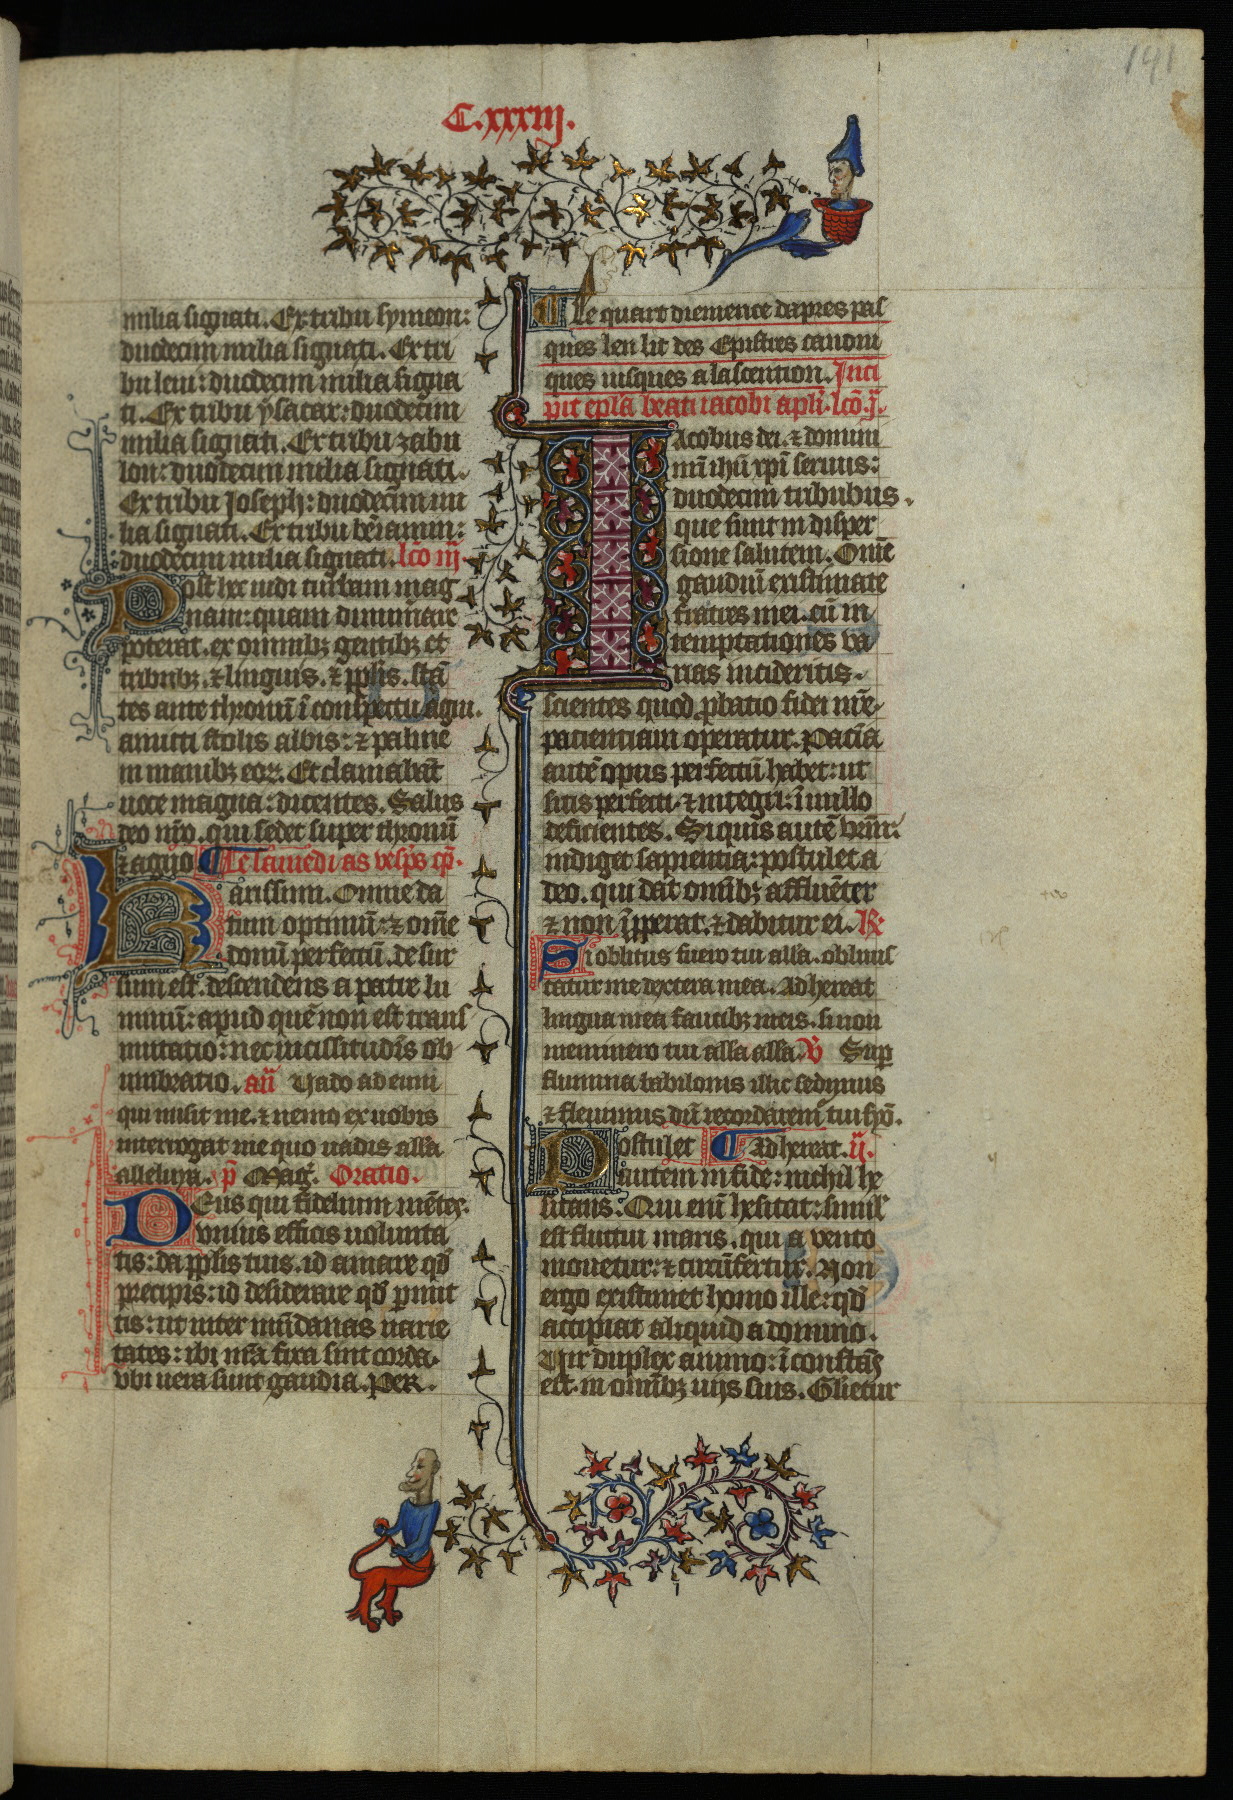 141
C.xxxiij.
milia signati. Ex tribu symeon:
duodecim milia signati. Ex tri
bu leui: duodecim milia signa
ti. Ex tribu ysacar: duodecim
milia signati. Ex tribu zabu
lon: duodecim milia signati.
Ex tribu Joseph: duodecim mi
lia signati. Ex tribu beiamin:
duodecim milia signati. lco iij.
Post hec uidi turbam mag
nam: quam dinumare
poterat. ex omnibz gentibz et
tribubz. ⁊ linguis. ⁊ pplis. sta
tes ante thronu i conspectu agni.
amicti stolis albis: ⁊ palme
in manibz eoꝝ. Et clamabat
uoce magna: dicentes. Salus
deo nro. qui sedet super thronu
⁊ agno. ¶ Le samedi as vesps cp.
Karissimi. Omne da
tum optimu: ⁊ ome
donu perfectu. de sur
sum est. descendens a patre lu
minu: apud que non est trans
mutatio: nec uicissitudis ob
umbratio. an Uado ad eum
qui misit me. ⁊ nemo ex uobis
interrogat me quo uadis alla
alleluya. p Mag. Oratio.
Deus qui fidelium metes
vnius efficis uolunta
tis: da pplis tuis. id amare qd
precipis: id desiderare qd pmit
tis: ut inter mudanas uarie
tates: ibi nra fixa sint corda.
vbi uera sunt gaudia. Per.
¶ Le quart diemence dapres pas
ques len lit des Epistres canoni
ques iusques a lascention. Inci
pit epla beati iacobi apli. lco.j.
Iacobus dei. ⁊ domini
nri ihu xpi seruus:
duodecim tribubus.
que sunt in disper
sione salutem. Ome
gaudiu existimate
fratres mei. cu in
temptationes va
rias incideritis.
scientes quod pbatio fidei nre
pacientiam operatur. Pacia
aute opus perfectu habet: ut
sitis perfecti ⁊ integri: i nullo
deficientes. Siquis aute vrm:
indiget sapientia: postulet a
deo. qui dat omibz afflueter
⁊ non ipperat. ⁊ dabitur ei. R
Si oblitus fuero tui alla. obliuis
catur me dextera mea. Adhereat
lingua mea faucibz meis. si non
meminero tui alla alla. V Sup
flumina babilonis illic sedimus
⁊ fleuimus du recordarem tui syo.
Postulet ¶ Adhereat. ij.
autem in fide: nichil he
sitans. Qui eni hesitat: simil
est fluctui maris. qui a vento
mouetur: ⁊ circufertur. Non
ergo existimet homo ille: qd
accipiat aliquid a domino.
Uir duplex animo: i constas
est. in omibz uijs suis. Glietur